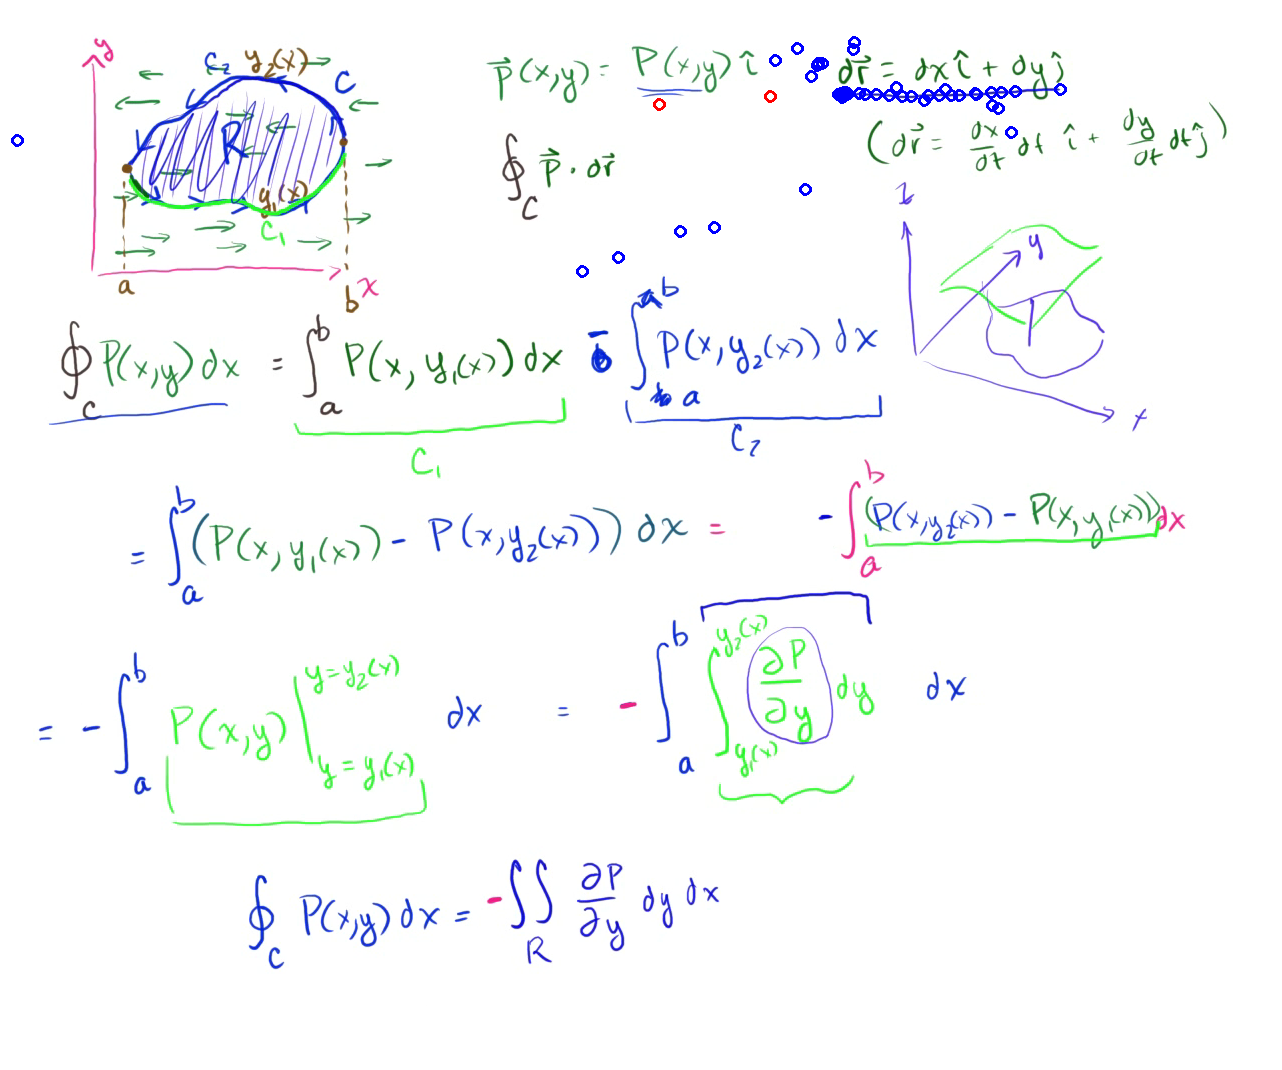 y
C₂ y₂(x)
C
R
y₁(x)
C₁
a
b
x
P⃗(x,y) = P(x,y) î
dr⃗ = dx î + dy ĵ
(dr⃗ = dx/dt dt î + dy/dt dt ĵ)
∮_C P⃗ · dr⃗
z
y
x
∮_C P(x,y) dx = ∫_a^b P(x, y₁(x)) dx - ∫_a^b P(x, y₂(x)) dx
C₁
C₂
= ∫_a^b (P(x, y₁(x)) - P(x, y₂(x))) dx = - ∫_a^b (P(x, y₂(x)) - P(x, y₁(x))) dx
= - ∫_a^b P(x,y) |_{y = y₁(x)}^{y = y₂(x)} dx = - ∫_a^b ∫_{y₁(x)}^{y₂(x)} ∂P/∂y dy dx
∮_C P(x,y) dx = - ∬_R ∂P/∂y dy dx